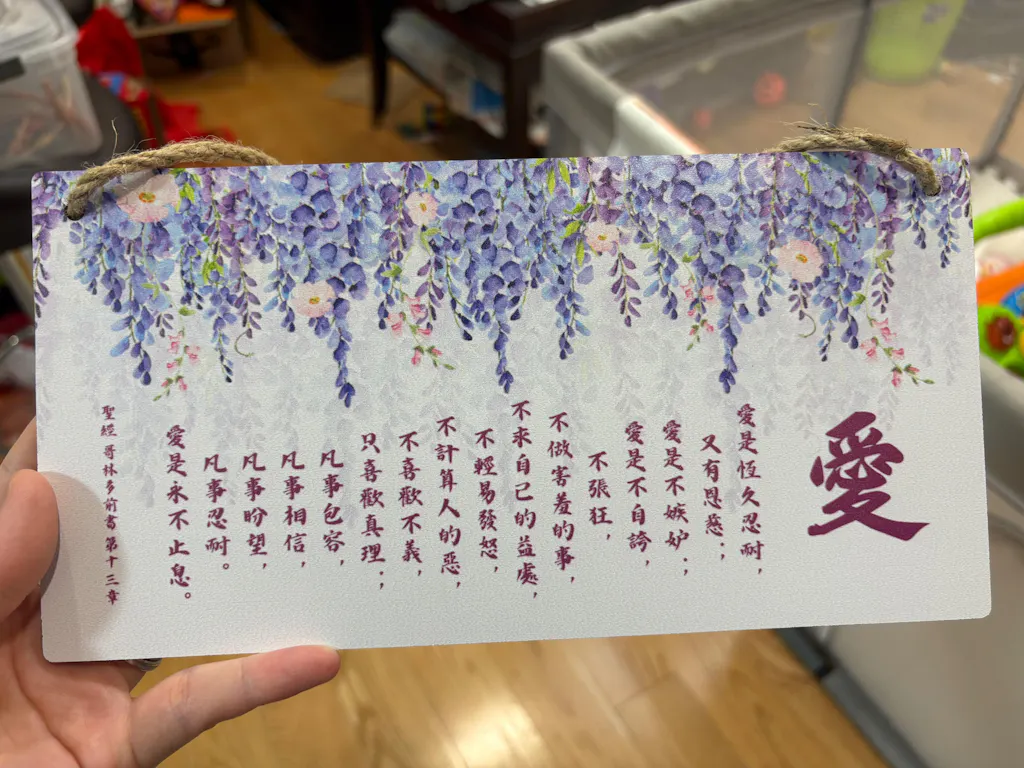 愛
愛是恆久忍耐，
又有恩慈；
愛是不嫉妒；
愛是不自誇，
不張狂，
不做害羞的事，
不求自己的益處，
不輕易發怒，
不計算人的惡，
不喜歡不義，
只喜歡真理；
凡事包容，
凡事相信，
凡事盼望，
凡事忍耐。
愛是永不止息。
聖經 哥林多前書 第十三章